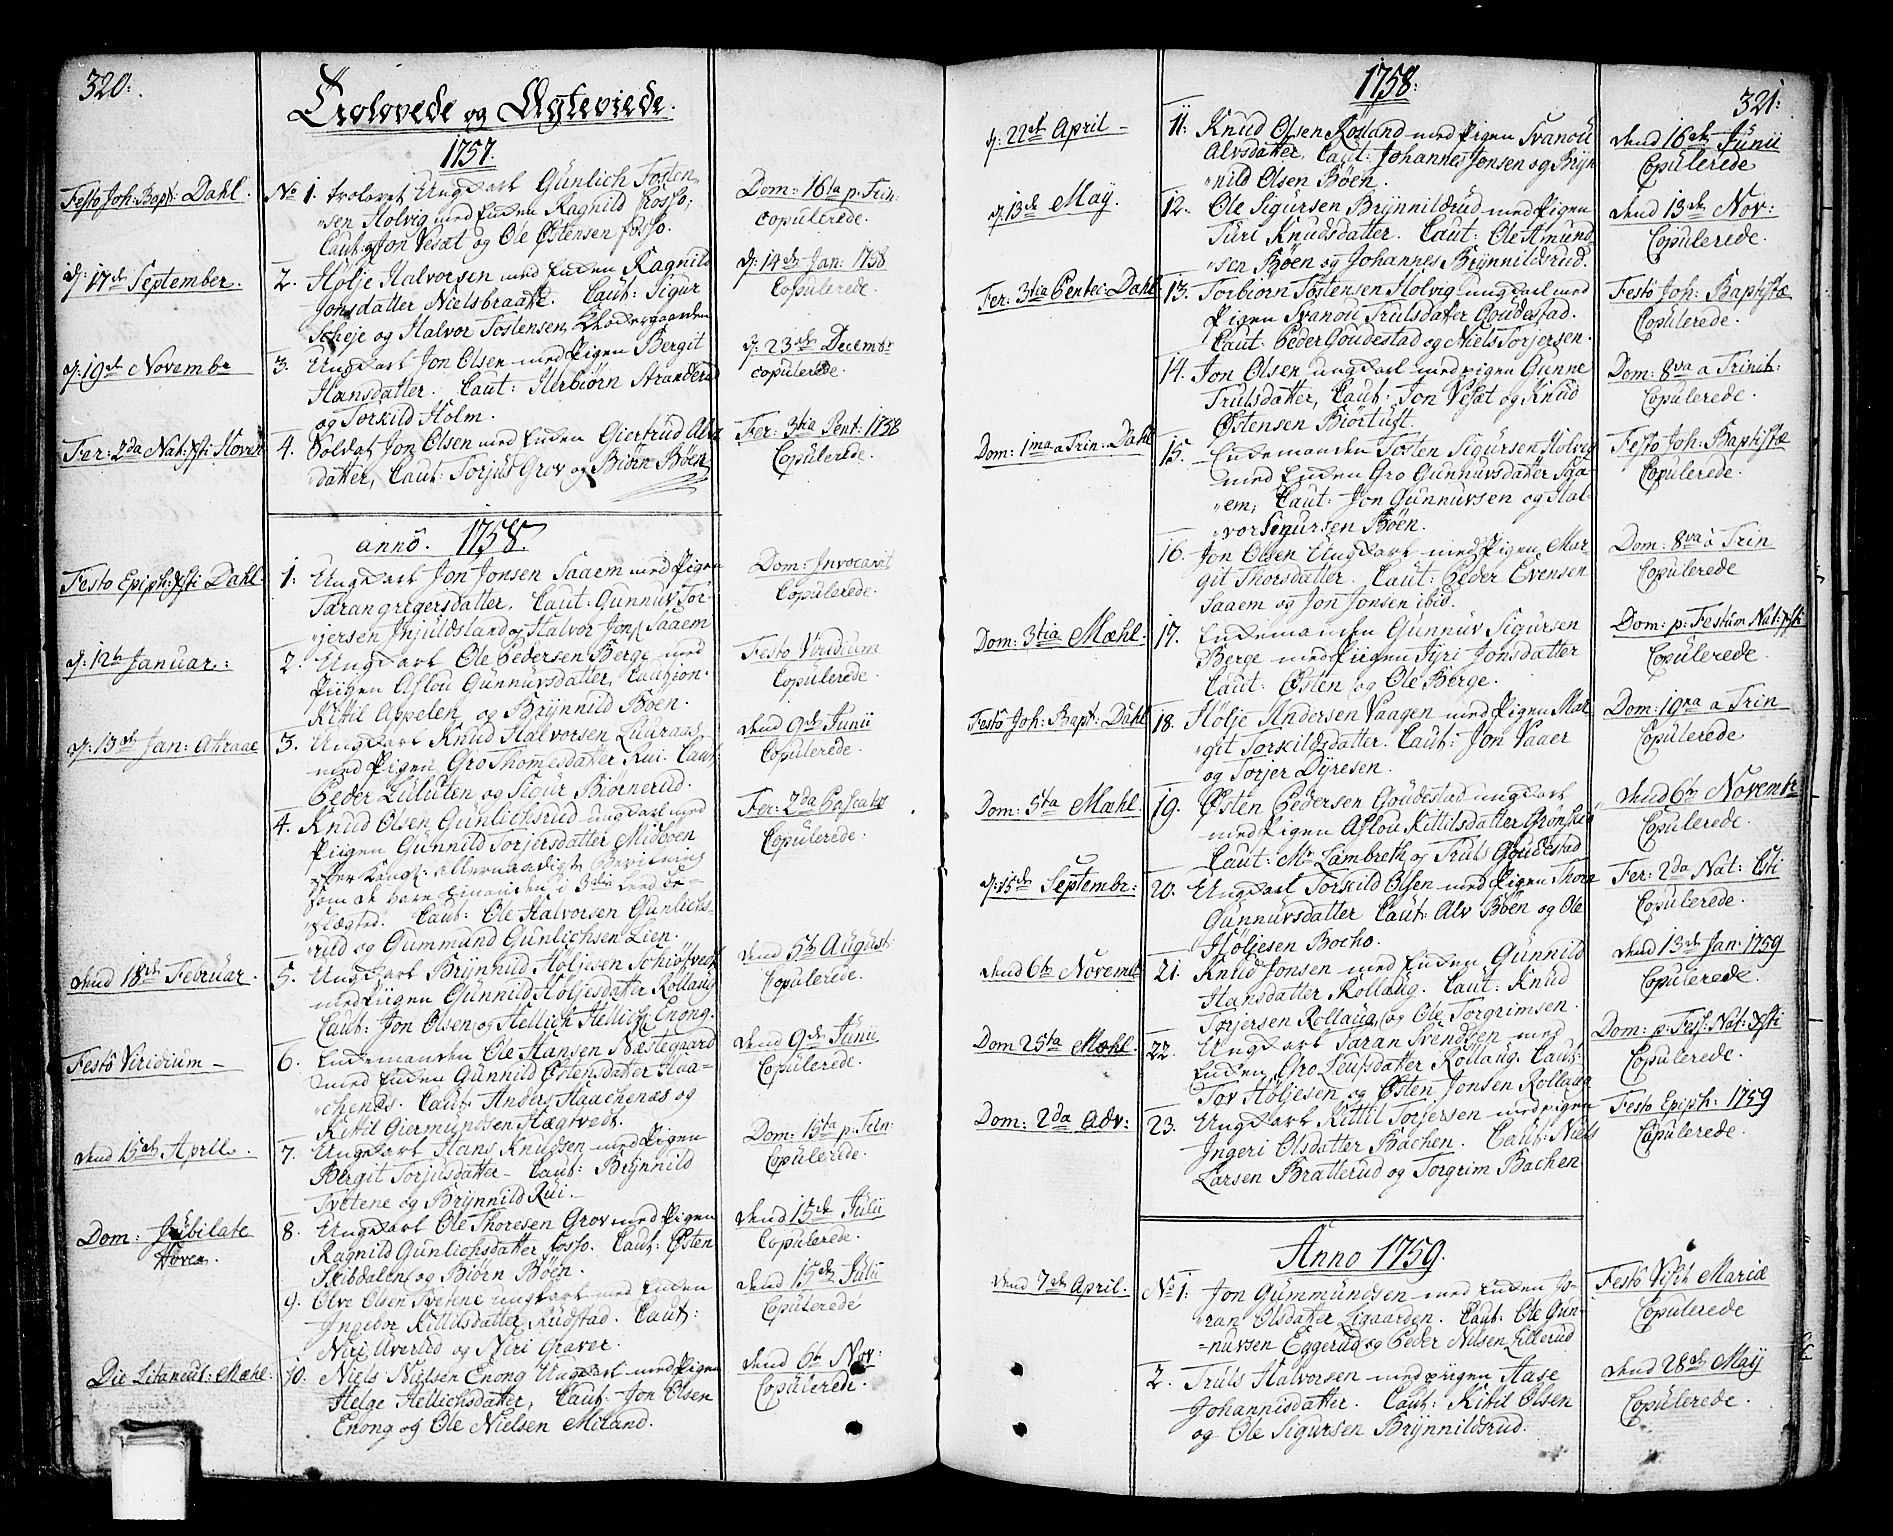 320.
Trolovede og Ægteviede.
1757.
Festo Joh: Bapt: Dahl.
No 1. trolovet Ungkarl Gunlich Tosten
sen Holvig med Enken Ragnild Fosso,
Caut: Jon Vesæt og Ole Østensen Fosso.
Dom: 16ta p. Trin:
copulerede.
d: 17de September.
2. Hølje Halvorsen med Enken Ragnild
Jonsdatter Nielsbraate. Caut: Sigur
Scheje og Halvor Tostensen
d: 14de Jan: 1758
Copulerede.
d: 19de Novembr
3. Ungkarl Jon Olsen med Pigen Bergit
Hansdatter. Caut: Herbiørn Stranderud
og Torkild Holm.
d: 23de Decembr
copulerede.
Fer: 2da Nat: Xsti Hoven
4. Soldat Jon Olsen med Enken Giertrud Alvs
datter, Caut: Torjus Grov og Biørn Bøen
Fer: 3tia Pent: 1758
Copulerede.
anno. 1758.
Festo Epiph: Xsti Dahl
1: Ungkarl Jon Jonsen Saaem med Pigen
Taran gregersdatter, Caut: Gunnuv Tor-
jersen Jnjuldsland og Halvor Jons Saaem
Dom: Invocavit
Copulerede.
d: 12te Januar:
2. Ungkarl Ole Pedersen Berge med
Piigen Aslou Gunnuvsdatter, Caut: Jon
Kittil Appelen og Brynnild Bøen.
Festo Viridium
Copulerede.
d: 13de Jan: Atraae
3. Ungkarl Knud Halvorsen Luuraas
med Pigen Gro Thomesdatter Rui. Caut:
Peder Luluten og Sigur Biørnerud.
dend 9de Junii
Copulerede.
4. Knud Olsen Gunlichsrud ungkarl med
Piigen Gunnild Torjersdatter Midbøen
efter Kongl: allernaadigste Bevilning
som de hare hinanden i 3die Leed be-
slægted. Caut: Ole Halvorsen Gunlichs-
rud og Gummund Gunlichsen Lien.
Fer: 2da Paschatos
Copulerede.
dend 18de Februar.
5. Ungkarl Brynnild Høljesen Schiøtvedt
med Piigen Gunnild Høljesdatter Rollaug
Caut: Jon Olsen og Hellich Hellichs Enong.
dend 5te August:
Copulerede.
Festo Viridium
6. Enkemanden Ole Hansen Næstegaard
med Enken Gunnild Østensdatter Haa-
chenæs. Caut: Anders Haachenæs og
Kittil Giermundsen Hægtvedt.
dend 9de Junii
Copulerede.
dend 15de Aprill.
7. Ungkarl Hans Knudsen med Pigen
Bergit Torjusdatter Caut: Brynnild
Tvetene og Brynnild Rui.
Dom: 15ta p. Trin:
Copulerede.
Dom: Jubilate
Hoven.
8. Ungkarl Ole Thoresen Grov med Pigen
Ragnild Gunlichsdatter Fosso. Caut: Østen
Skibdalen og Biørn Bøen.
dend 15de Julii
Copulerede.
9. Olve Olsen Tvetene ungkarl med Enken
Ingebor Kittilsdatter Rudstad. Caut:
Niri Averlid og Niri Graver.
dend 15de Julii
Copulerede
Die Litaneut: Mæhl.
10. Niels Nielsen Enong Ungkarl med Pigen
Helge Hellichsdatter, Caut Jon Olsen
Enong og Ole Nielsen Miland.
dend 6te Nov:
Copulerede.
1758.
321.
d: 22de April
11: Knud Olsen Røsland med Pigen Svanou
Alvsdatter, Caut: Johannes Jonsen og Bryn
nild Olsen Bøen.
dend 16de Junii
Copulerede
d: 13de May.
12. Ole Sigursen Brynnildsrud med Pigen
Turi Knudsdatter. Caut: Ole Amund
sen Bøen og Johannes Brynnildsrud.
dend 13de Nov:
Copulerede.
Fer: 3tia Pentec: Dahl
13. Torbiørn Tostensen Holvig ungkarl med
Pigen Svanou Trulsdatter Goudestad.
Caut: Peder Goudestad og Niels Torjersen.
Festo Joh: Baptistæ
Copulerede.
14. Jon Olsen ungkarl med pigen Gunne
Trulsdatter, Caut: Jon Vesæt og Knud
Østensen Biørtuft.
Dom: 8va a Trinit:
Copulerede.
Dom: 1ma a Trin: Dahl
15. Enkemanden Tosten Sigursen Holvig
med Enken Gro Gunnuvsdatter Saa-
em, Caut: Jon Gunnuvsen og Hal-
vor Sigursen Bøen.
Festo Joh: Baptistæ
Copulerede.
16. Jon Olsen Ungkarl med Pigen Mar-
git Thorsdatter. Caut: Peder Evensen
Saaem og Jon Jonsen ibid.
Dom: 8va a Trin
Copulerede.
Dom: 3tia Mæhl.
17. Enkemanden Gunnuv Sigursen
Berge med Piigen Jyri Jonsdatter
Caut: Østen og Ole Berge.
Dom: p: Festum Nat: Xsti
Copulerede.
Festo Joh: Bapt: Dahl
18. Hølje Andersen Vaagen med Pigen Mar
git Torkildsdatter. Caut: Jon Vaaer
og Torjer Dyresen.
Dom: 10ma a Trin
Copulerede.
Dom: 5ta Mæhl.
19. Østen Pedersen Goudestad ungkarl
med Pigen Aslou Kittilsdatter Grønskei
Caut: Mr Lambreth og Truls Goudestad
dend 6te Novembr
Copulerede.
d: 15de Septembr:
20. Ungkarl Torkild Olsen med Pigen Thora
Gunnuvsdatter Caut: Alv Bøen og Ole
Høljesen Bocho.
Fer: 2da Nat: Xsti
Copulerede.
dend 6te Novembr
21. Knud Jonsen med Enken Gunnild
Hansdatter Rollaug. Caut: Knud
Torjersen Rollaug, og Ole Torgrimsen.
dend 13de Jan: 1759
Copulerede.
Dom 25ta Mæhl.
22. Ungkarl Taran Svendsen med
Enken Gro Leufsdatter Rollaug. Caut:
Tov Høljesen og Østen Jonsen Rollaug
Dom: p: Fest: Nat: Xsti
Copulerede.
Dom: 2da Adv:
23. Ungkarl Kittil Torjersen med pigen
Ingeri Olsdatter Bachen. Caut: Niels
Larsen Bratterud og Torgrim Bachen.
Festo Epiph: 1759
Copulerede.
Anno 1759.
dend 7de April.
No 1: Jon Gummundsen med Enken Jo-
ran Olsdatter Ligaarden. Caut: Ole Gun-
nuvsen Eggerud og Peder Nilsen Lillerud
Festo Visit Mariæ
Copulerede
2. Truls Halvorsen med piigen Aase
Johannisdatter. Caut: Kittil Olsen
og Ole Sigursen Brynnildsrud.
dend 28de Maij
Copulerede.